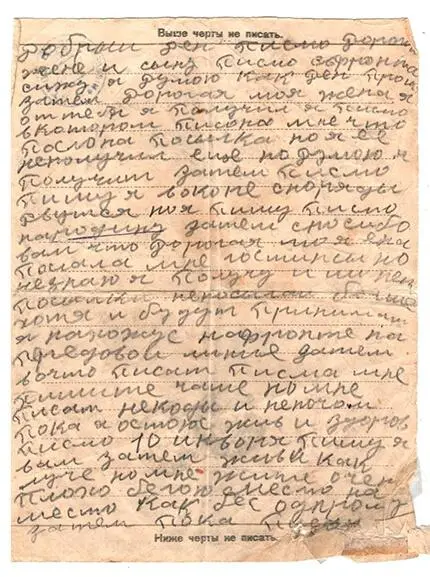 Выше черты не писать.
добрый ден писмо дорогой
жене и сыну писмо с фронта
сижу я думою как ден прош
затем дорогая моя жена я
от тебя получил я писмо
в котором писона мне что
послона посылка но я её
неполучил еще но думою
получит затем писмо
пишу я локоне споряды
рвутся но я пишу писмо
народину затем спосибо
вам что дорогая моя жена
послала мне гостинсы но
незнаю я получу и ли нет
посылки непосылай больше
хотя и будут принимат
я нахожус нафронте на
предовой линие затем
вочто писат писма мне
пишите чаше но мне
писат некоды и непочом
пока я остоюс жив и здоров
писмо 10 икворя пишу я
вам затем живи как
луче но мне жите очен
плохо бегою место на
место как бес одному
затем пока
Ниже черты не писать.